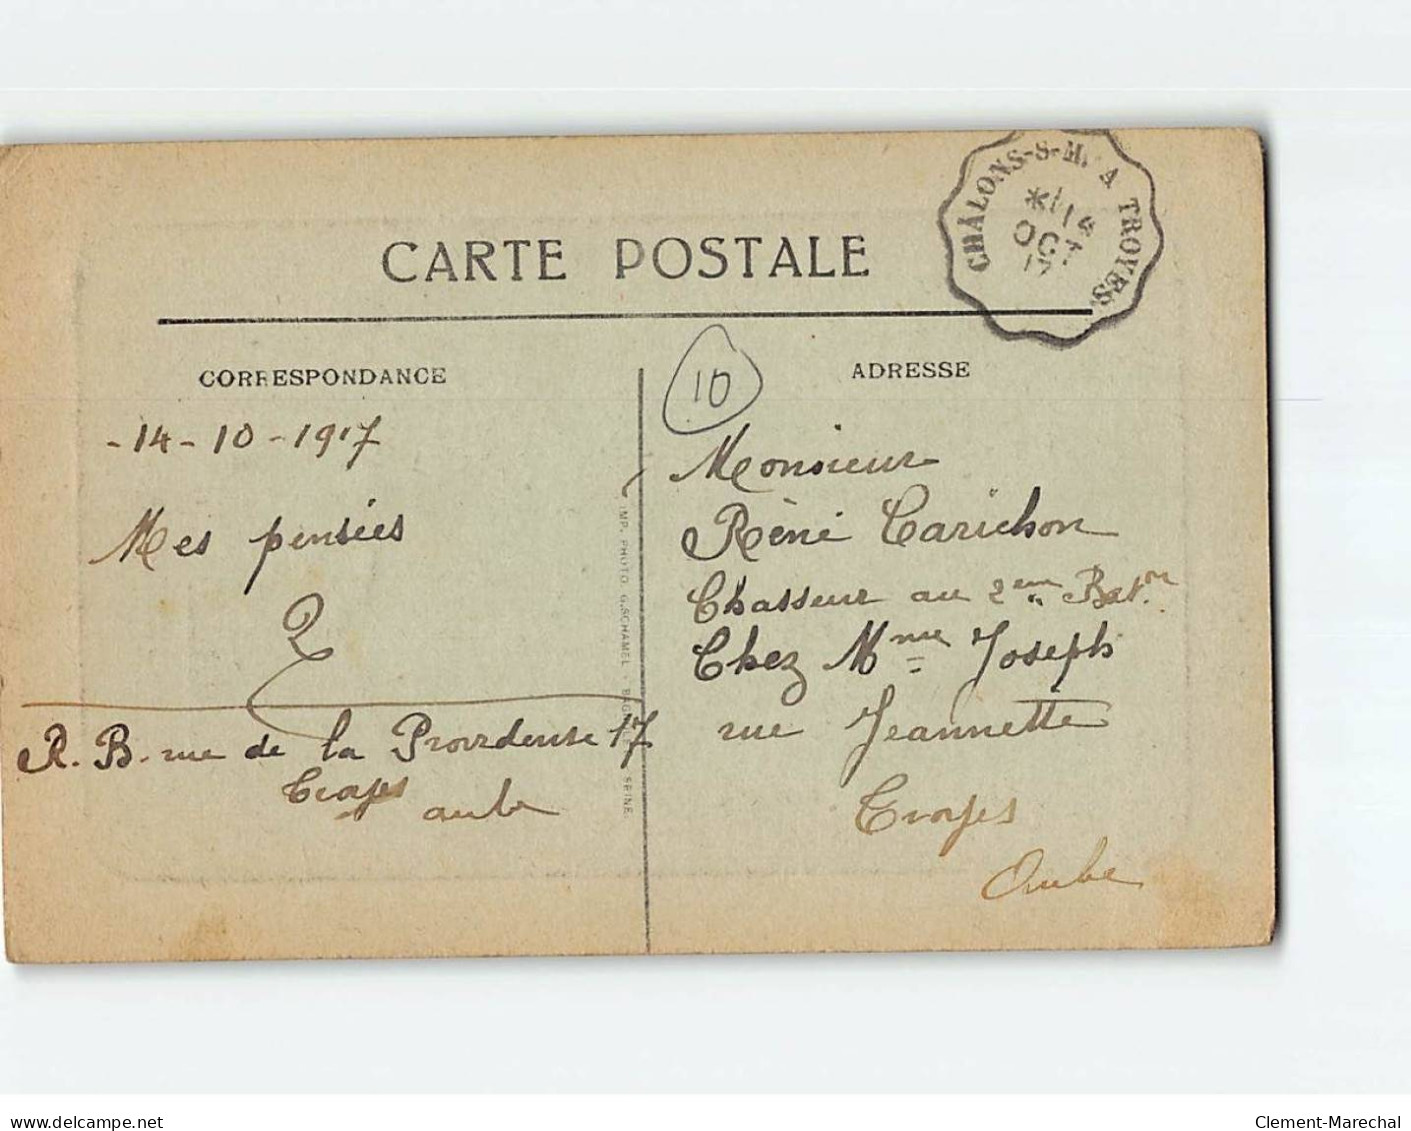 CARTE POSTALE
CHÂLONS-S-M. A TROYES
14
OCT
17
CORRESPONDANCE
ADRESSE
10
-14-10-1917
Mes pensées
R. B. rue de la Providense 17
Troyes
aube
IMP. PHOTO. G. SCHAMEL SEINE.
Monsieur
Rèné Carichon
Chasseur au 2eme Baton
Chez Mme Joseph
rue Jeannette
Troyes
Aube
delcampe.net
Clement-Marechal